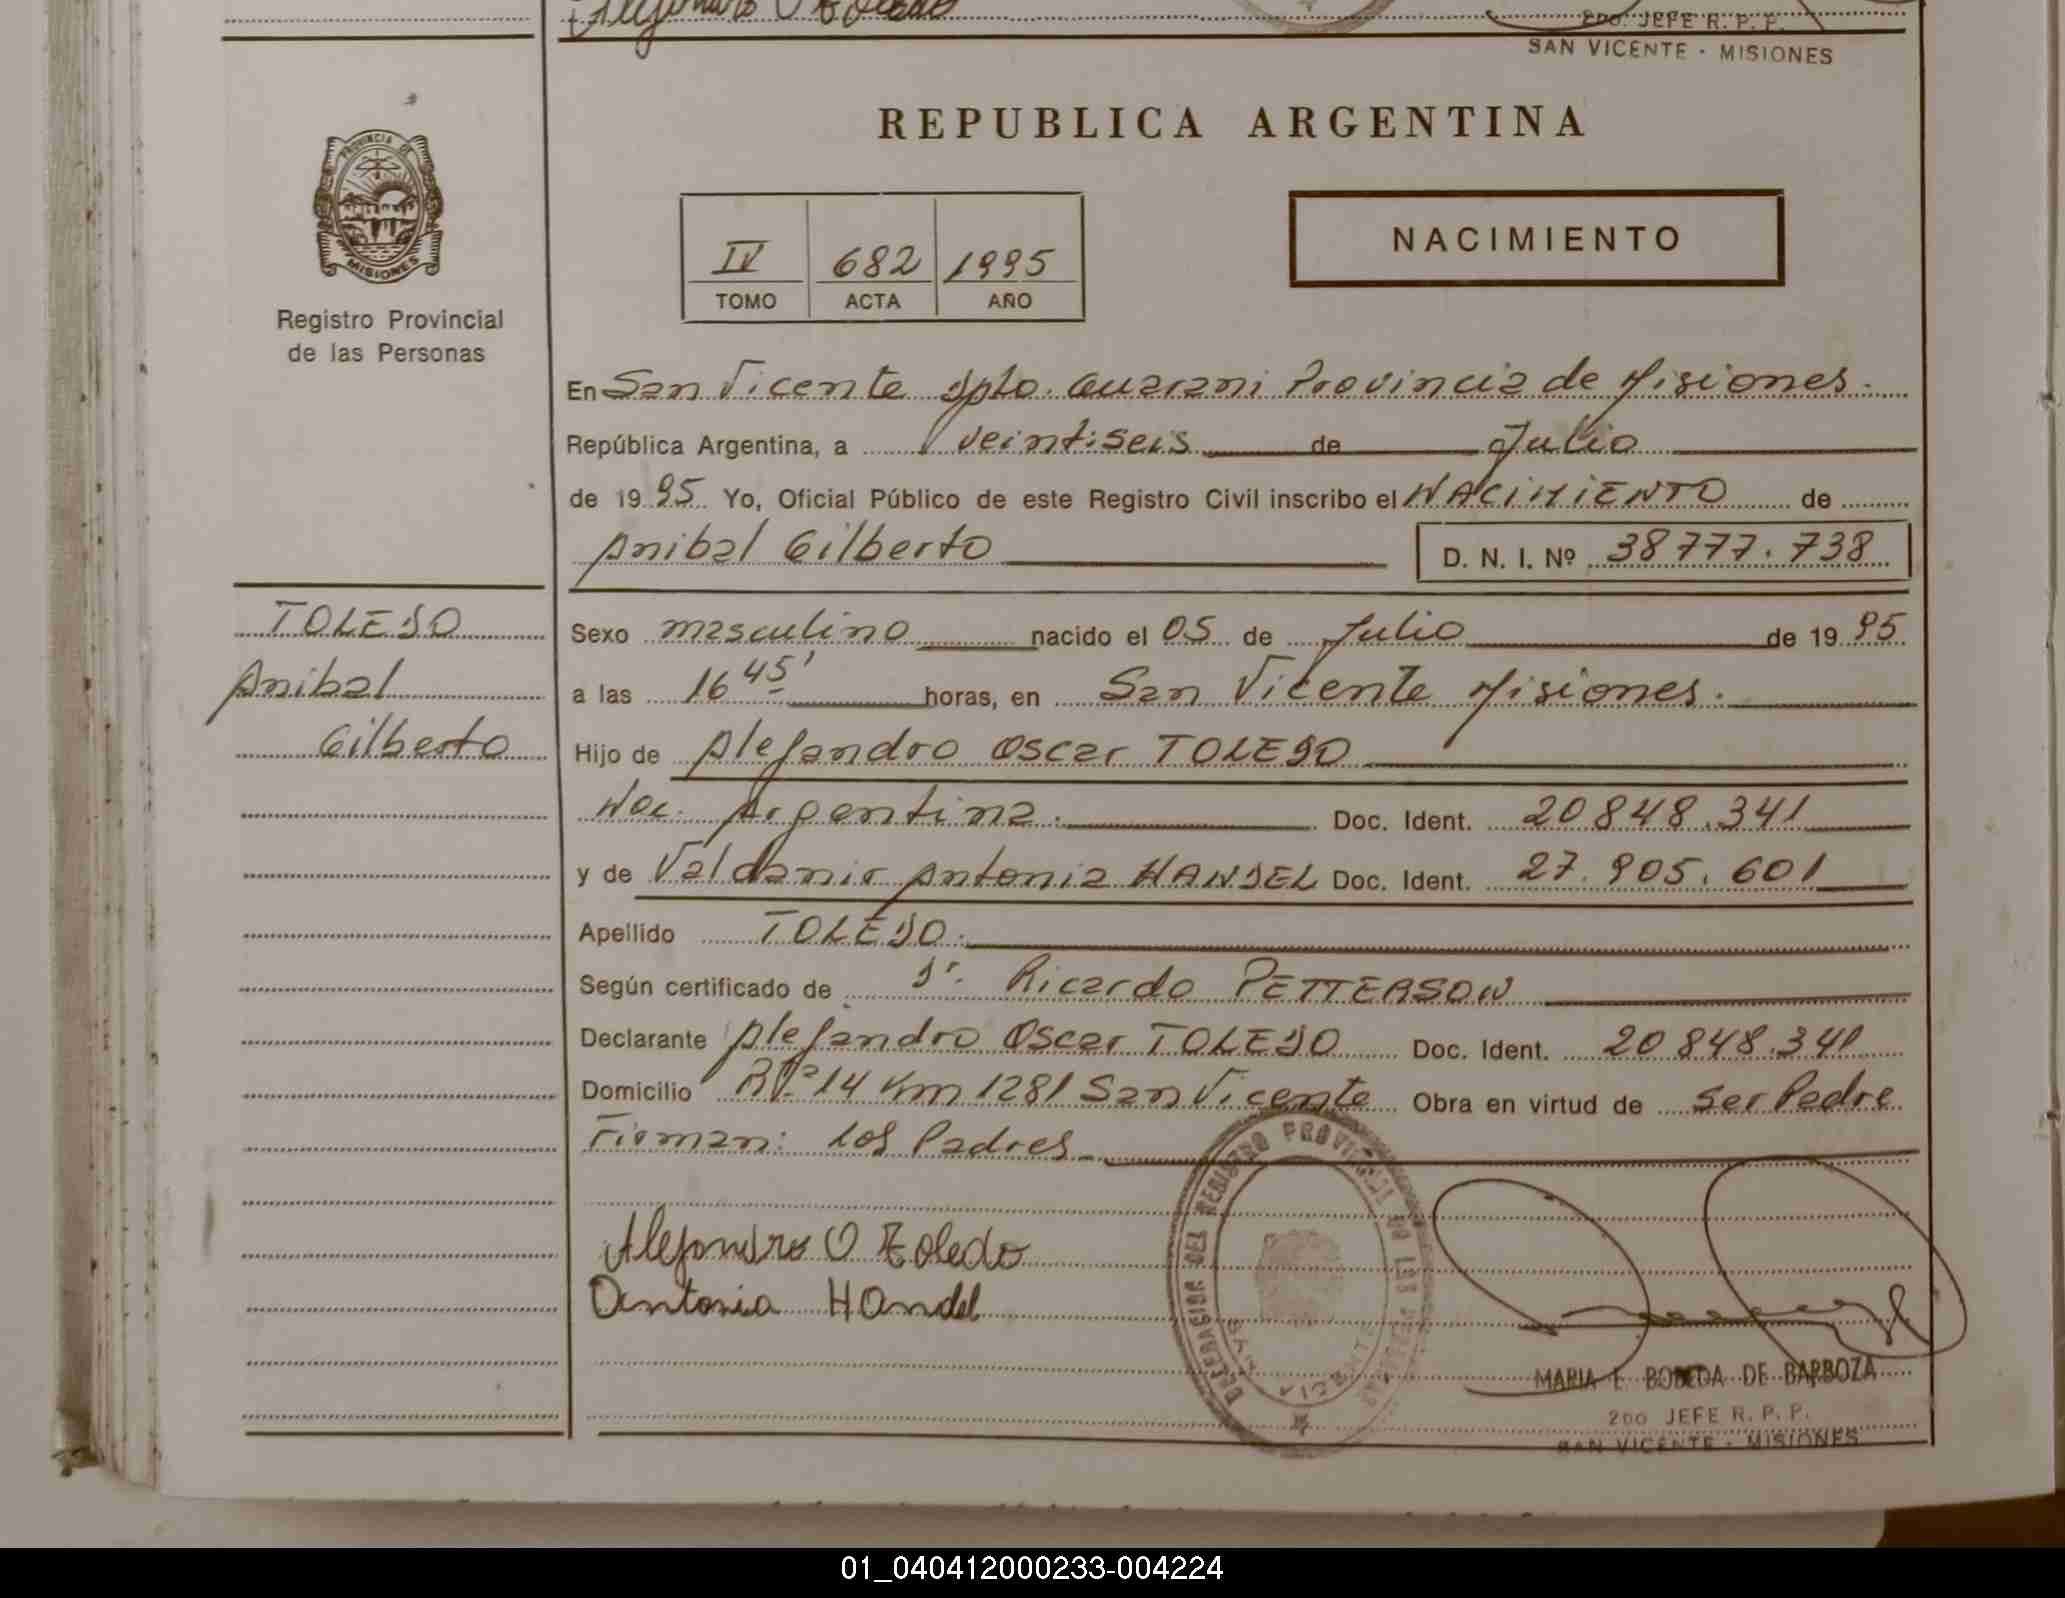 Alejandro O Toledo
2DO. JEFE R. P. P.
SAN VICENTE - MISIONES
PROVINCIA DE
MISIONES
Registro Provincial
de las Personas
REPUBLICA ARGENTINA
IV 682 1995
TOMO ACTA AÑO
NACIMIENTO
En San Vicente Dpto. Guarani Provincia de Misiones.
República Argentina, a veintiseis de Julio
de 1995 Yo, Oficial Público de este Registro Civil inscribo el NACIMIENTO de
Anibal Gilberto D. N. I. Nº 38777.738
TOLEDO
Anibal
Gilberto
Sexo masculino nacido el 05 de Julio de 1995
a las 16 45' horas, en San Vicente Misiones.
Hijo de Alejandro Oscar TOLEDO
Nac. Argentina. Doc. Ident. 20848.341
y de Valdanir Antonia HANDEL Doc. Ident. 27.905.601
Apellido TOLEDO.
Según certificado de Dr. Ricardo PETTERSON
Declarante Alejandro Oscar TOLEDO Doc. Ident. 20848.341
Domicilio R Nº 14 Km 1281 San Vicente Obra en virtud de ser Padre
Firman: los Padres
Alejandro O Toledo
Antonia Handel
DELEGACION DEL REGISTRO PROVINCIAL DE LAS PERSONAS
SAN VICENTE
MARIA E. BOBEDA DE BARBOZA
2DO JEFE R. P. P.
SAN VICENTE - MISIONES
01_040412000233-004224